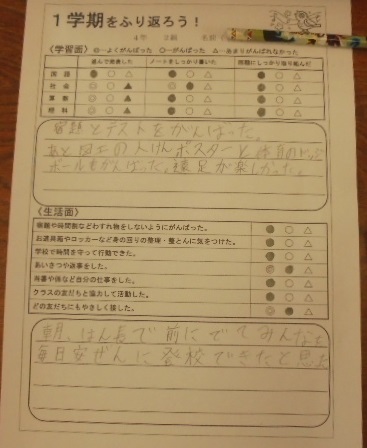 1学期をふり返ろう！
4年 組 名前
〈学習面〉 ◎…よくがんばった ○…がんばった △…あまりがんばれなかった
進んで発表した ノートをしっかり書いた 宿題にしっかり取り組んだ
国語 ● ○ △ ● ○ △ ● ○ △
社会 ◎ ○ ▲ ◎ ● △ ● ○ △
算数 ◎ ○ ▲ ● ○ △ ● ○ △
理科 ◎ ○ ▲ ● ○ △ ● ○ △
宿題とテストをがんばった。
あと図工の人けんポスターと体育のドッジ
ボールをがんばった。遠足が楽しかった。
〈生活面〉
宿題や時間割などわすれ物をしないようにがんばった。 ● ○ △
お道具箱やロッカーなど身の回りの整理・整とんに気をつけた。 ● ○ △
学校で時間を守って行動できた。 ● ○ △
あいさつや返事をした。 ◎ ● △
当番や係など自分の仕事をした。 ● ○ △
クラスの友だちと協力して活動した。 ● ○ △
どの友だちにもやさしく接した。 ◎ ● △
朝、はん長で前にでてみんなを
毎日安ぜんに登校できたと思